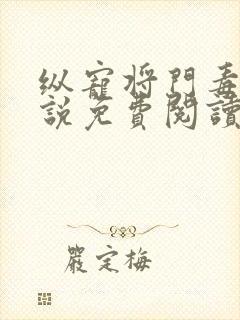 纵寵将門毒
說免費閱讀
嚴定梅